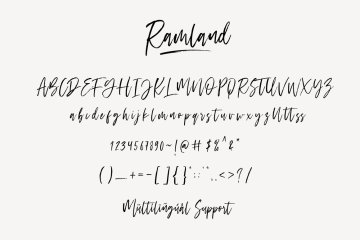 Ramland
ABCDEFGHIJKLMNOPQRSTUVWXYZ
abcdefghijklmnopqrstuvwxyzUttss
1234567890~!@#$%^&*
()__+=-[]{}":;'",.<>?/
Multilingual Support